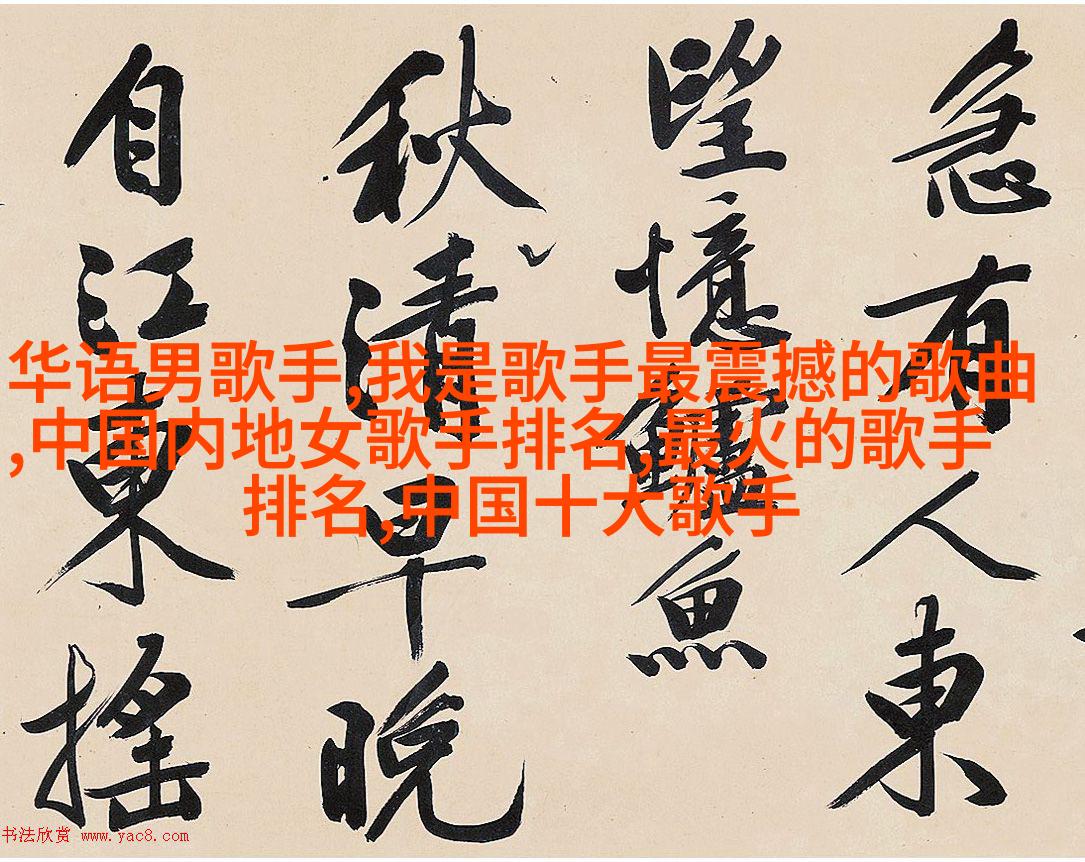 急有人東
望憶鱸魚
秋清早晚
自江東搖
华语男歌手,我是歌手最震撼的歌曲
,中国内地女歌手排名,最火的歌手
排名,中国十大歌手
书法欣赏 www.yac8.com